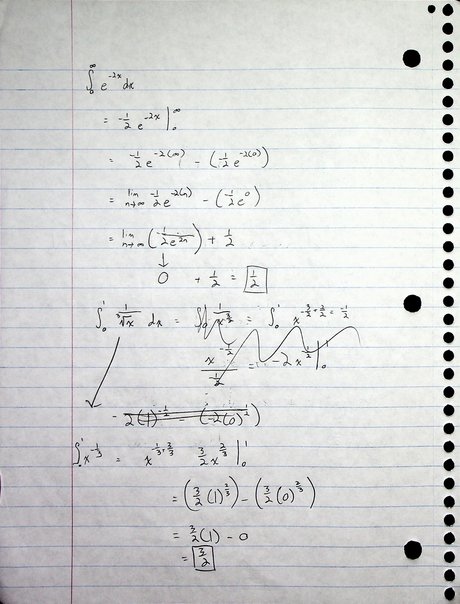 ∫₀^∞ e^(-2x) dx
= -1/2 e^(-2x) |₀^∞
= -1/2 e^(-2(∞)) - (-1/2 e^(-2(0)))
= lim n→∞ -1/2 e^(-2(n)) - (-1/2 e^0)
= lim n→∞ (-1/(2e^(2n))) + 1/2
↓
0 + 1/2 = 1/2
∫₀^1 1/∛x dx = ∫₀ 1/x^(3/2) = ∫₀^1 x^(-3/2 + 2/2 = -1/2)
x^(-1/2) / (-1/2) = -2x^(-1/2) |₀^1
- 2(1)^(-1/2) - (-2(0)^(1/2))
∫₀^1 x^(-1/3) = x^(-1/3 + 3/3) 3/2 x^(2/3) |₀^1
= (3/2 (1)^(2/3)) - (3/2 (0)^(2/3))
= 3/2 (1) - 0
= 3/2